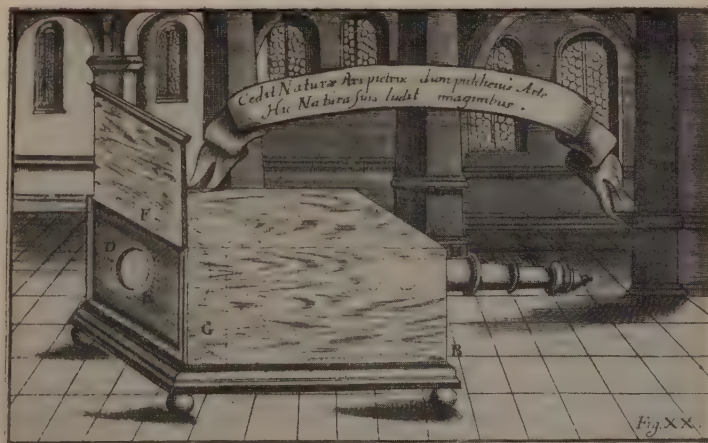 Cedit Naturæ Ars pictrix dum pulchrius Arte
Hic Natura suis ludit imaginibus.
F
D
G
B
Fig. XX.